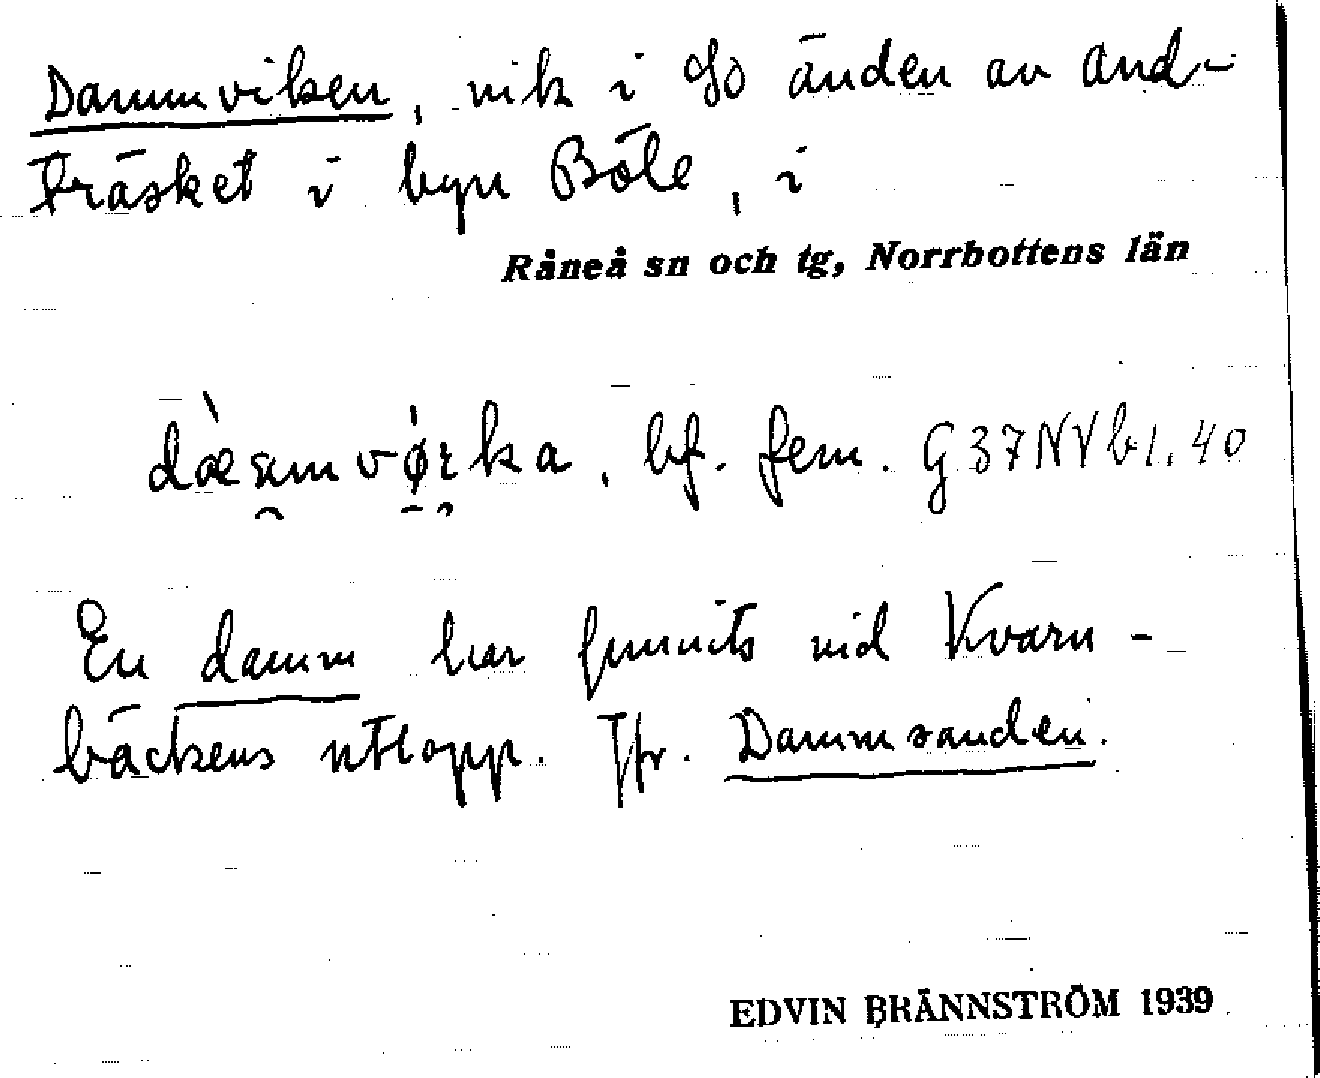 Dammviken, vik i So änden av And-
träsket i byn Böle, i
Råneå sn och tg, Norrbottens län
bf. fem. G37NVb1.40
En damm har funnits vid Kvarn-
bäckens utlopp. Jfr. Dammsanden.
EDVIN BRÄNNSTRÖM 1939